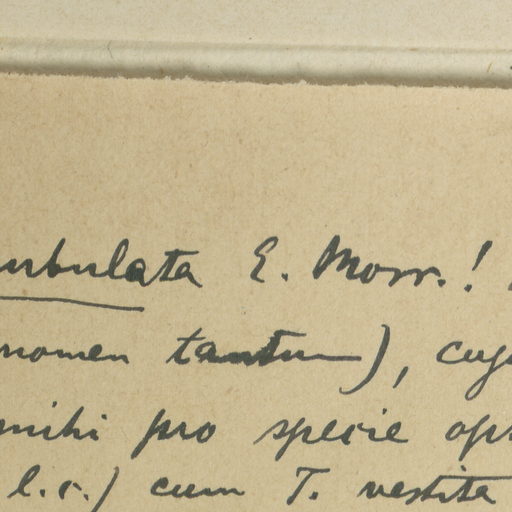 urbulata E. Morr.!
nomen tantum), cuj
mihi pro specie op
l.c.) cum T. vestita